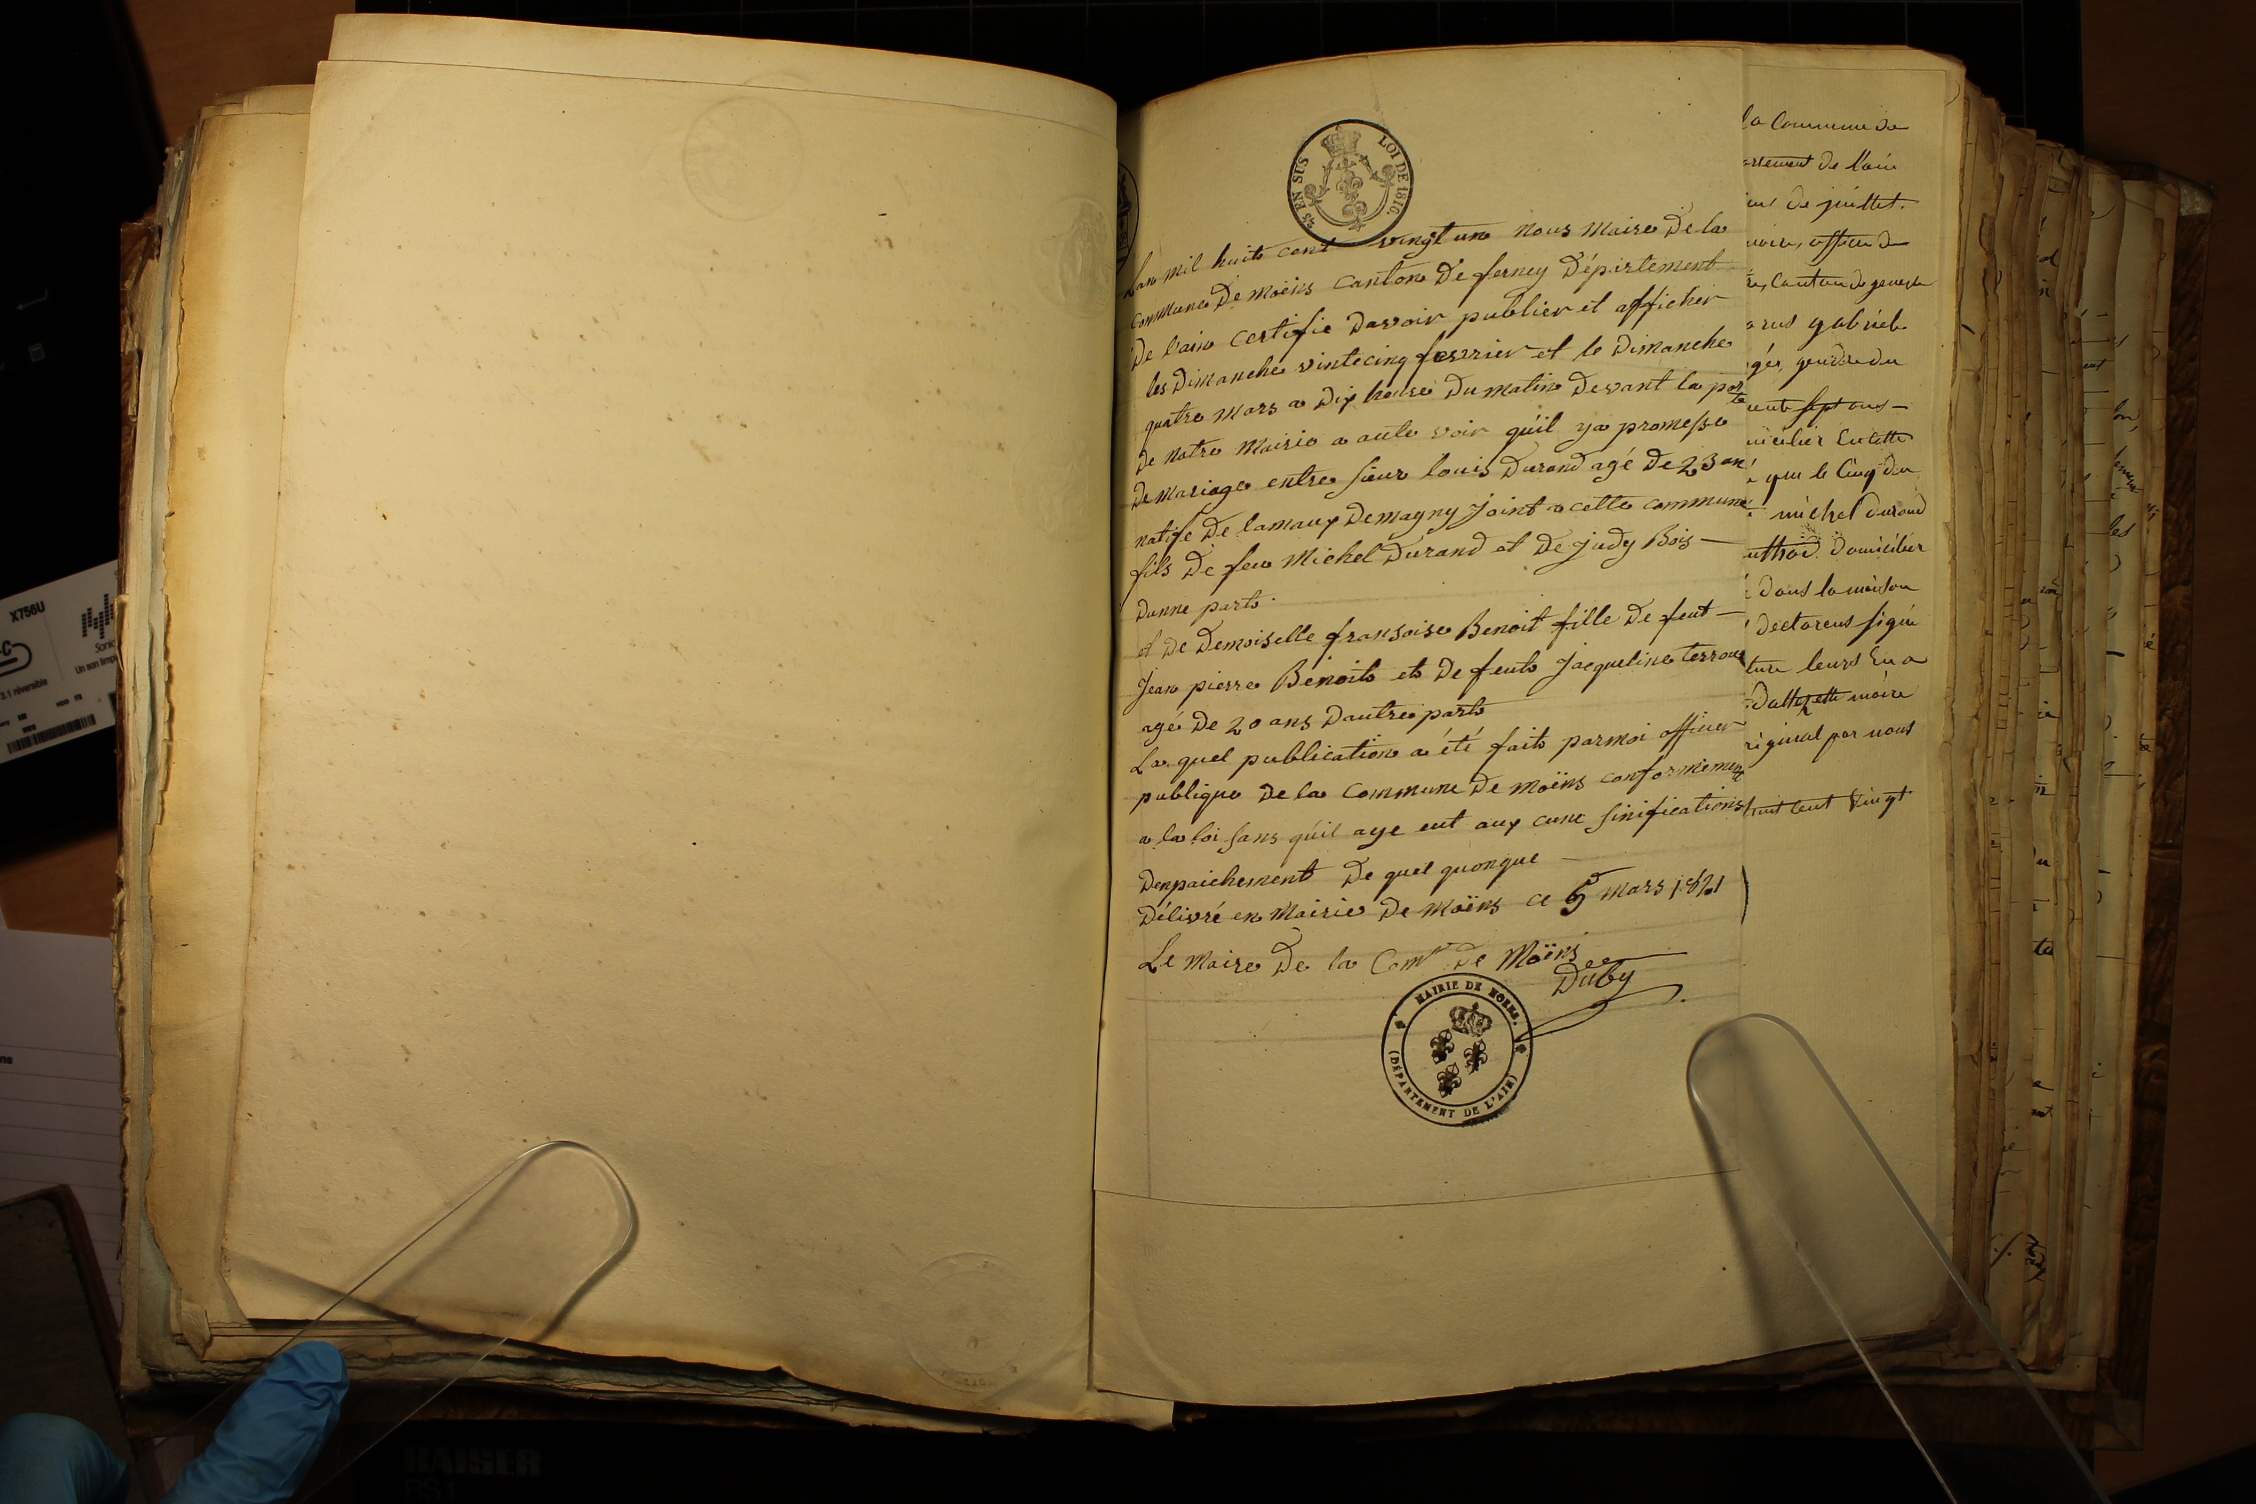 ¼ EN SUS LOI DE 1816
Lan mil huit cent vingt une nous Maire De la
commune De moëns Canton De ferney Département
De l'ain certifie Davoir publier et afficher
les Dimanche vintecinq fevrier et le Dimanche
quatre Mars a Dix heure Du matin Devant la porte
De notre Mairie a aute voir qu'il ya promesse
De mariage entre sieur louis Durand agé De 23 an
natife De lamaux Demagny joint a cette commune
fils De feu Michel Durand et De judy Bois —
Dunne parts
et De Demoiselle fransoise Benoit fille De feut —
Jean pierre Benoits ets De feuts Jacqueline terroux
agé De 20 ans Dautre parts
La quel publication a été faits parmoi officier
publique De la Commune De moëns conformement
a la loi sans qu'il aye eut aux cune sinifications
Denpaichement De quel quonque —
Délivré en Mairie De Moëns ce 5 mars 1821
Le Maire De la Comne De Moëns
Duby
MAIRIE DE MOENS.
(DÉPARTEMENT DE L'AIN)
la Commune de
de l'ain
de juillet.
officu de
Canton de geneve
gabriel
du
ans —
en cette
que le Cinq du
michel durand
domicilier
Dans la maison
signé
leurs En a
maire
par nous
cent vingt
X756U
3.1 réversible